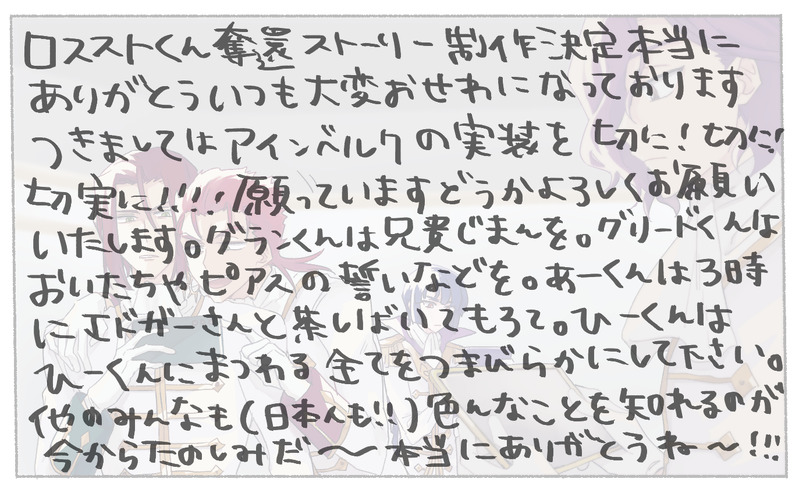 ロスストくん奪還ストーリー制作決定本当に
ありがとういつも大変おせわになっております
つきましてはアインベルクの実装を切に!切に!
切実に!!!!願っていますどうかよろしくお願い
いたします。グランくんは兄貴じまんを。グリードくんは
おいたちやピアスの誓いなどを。あーくんは3時
にエドガーさんと茶しばいてもろて。ひーくんは
ひーくんにまつわる全てをつまびらかにして下さい。
他のみんなも(日本人も!!)色んなことを知れるのが
今からたのしみだ〜〜本当にありがとうね〜!!!